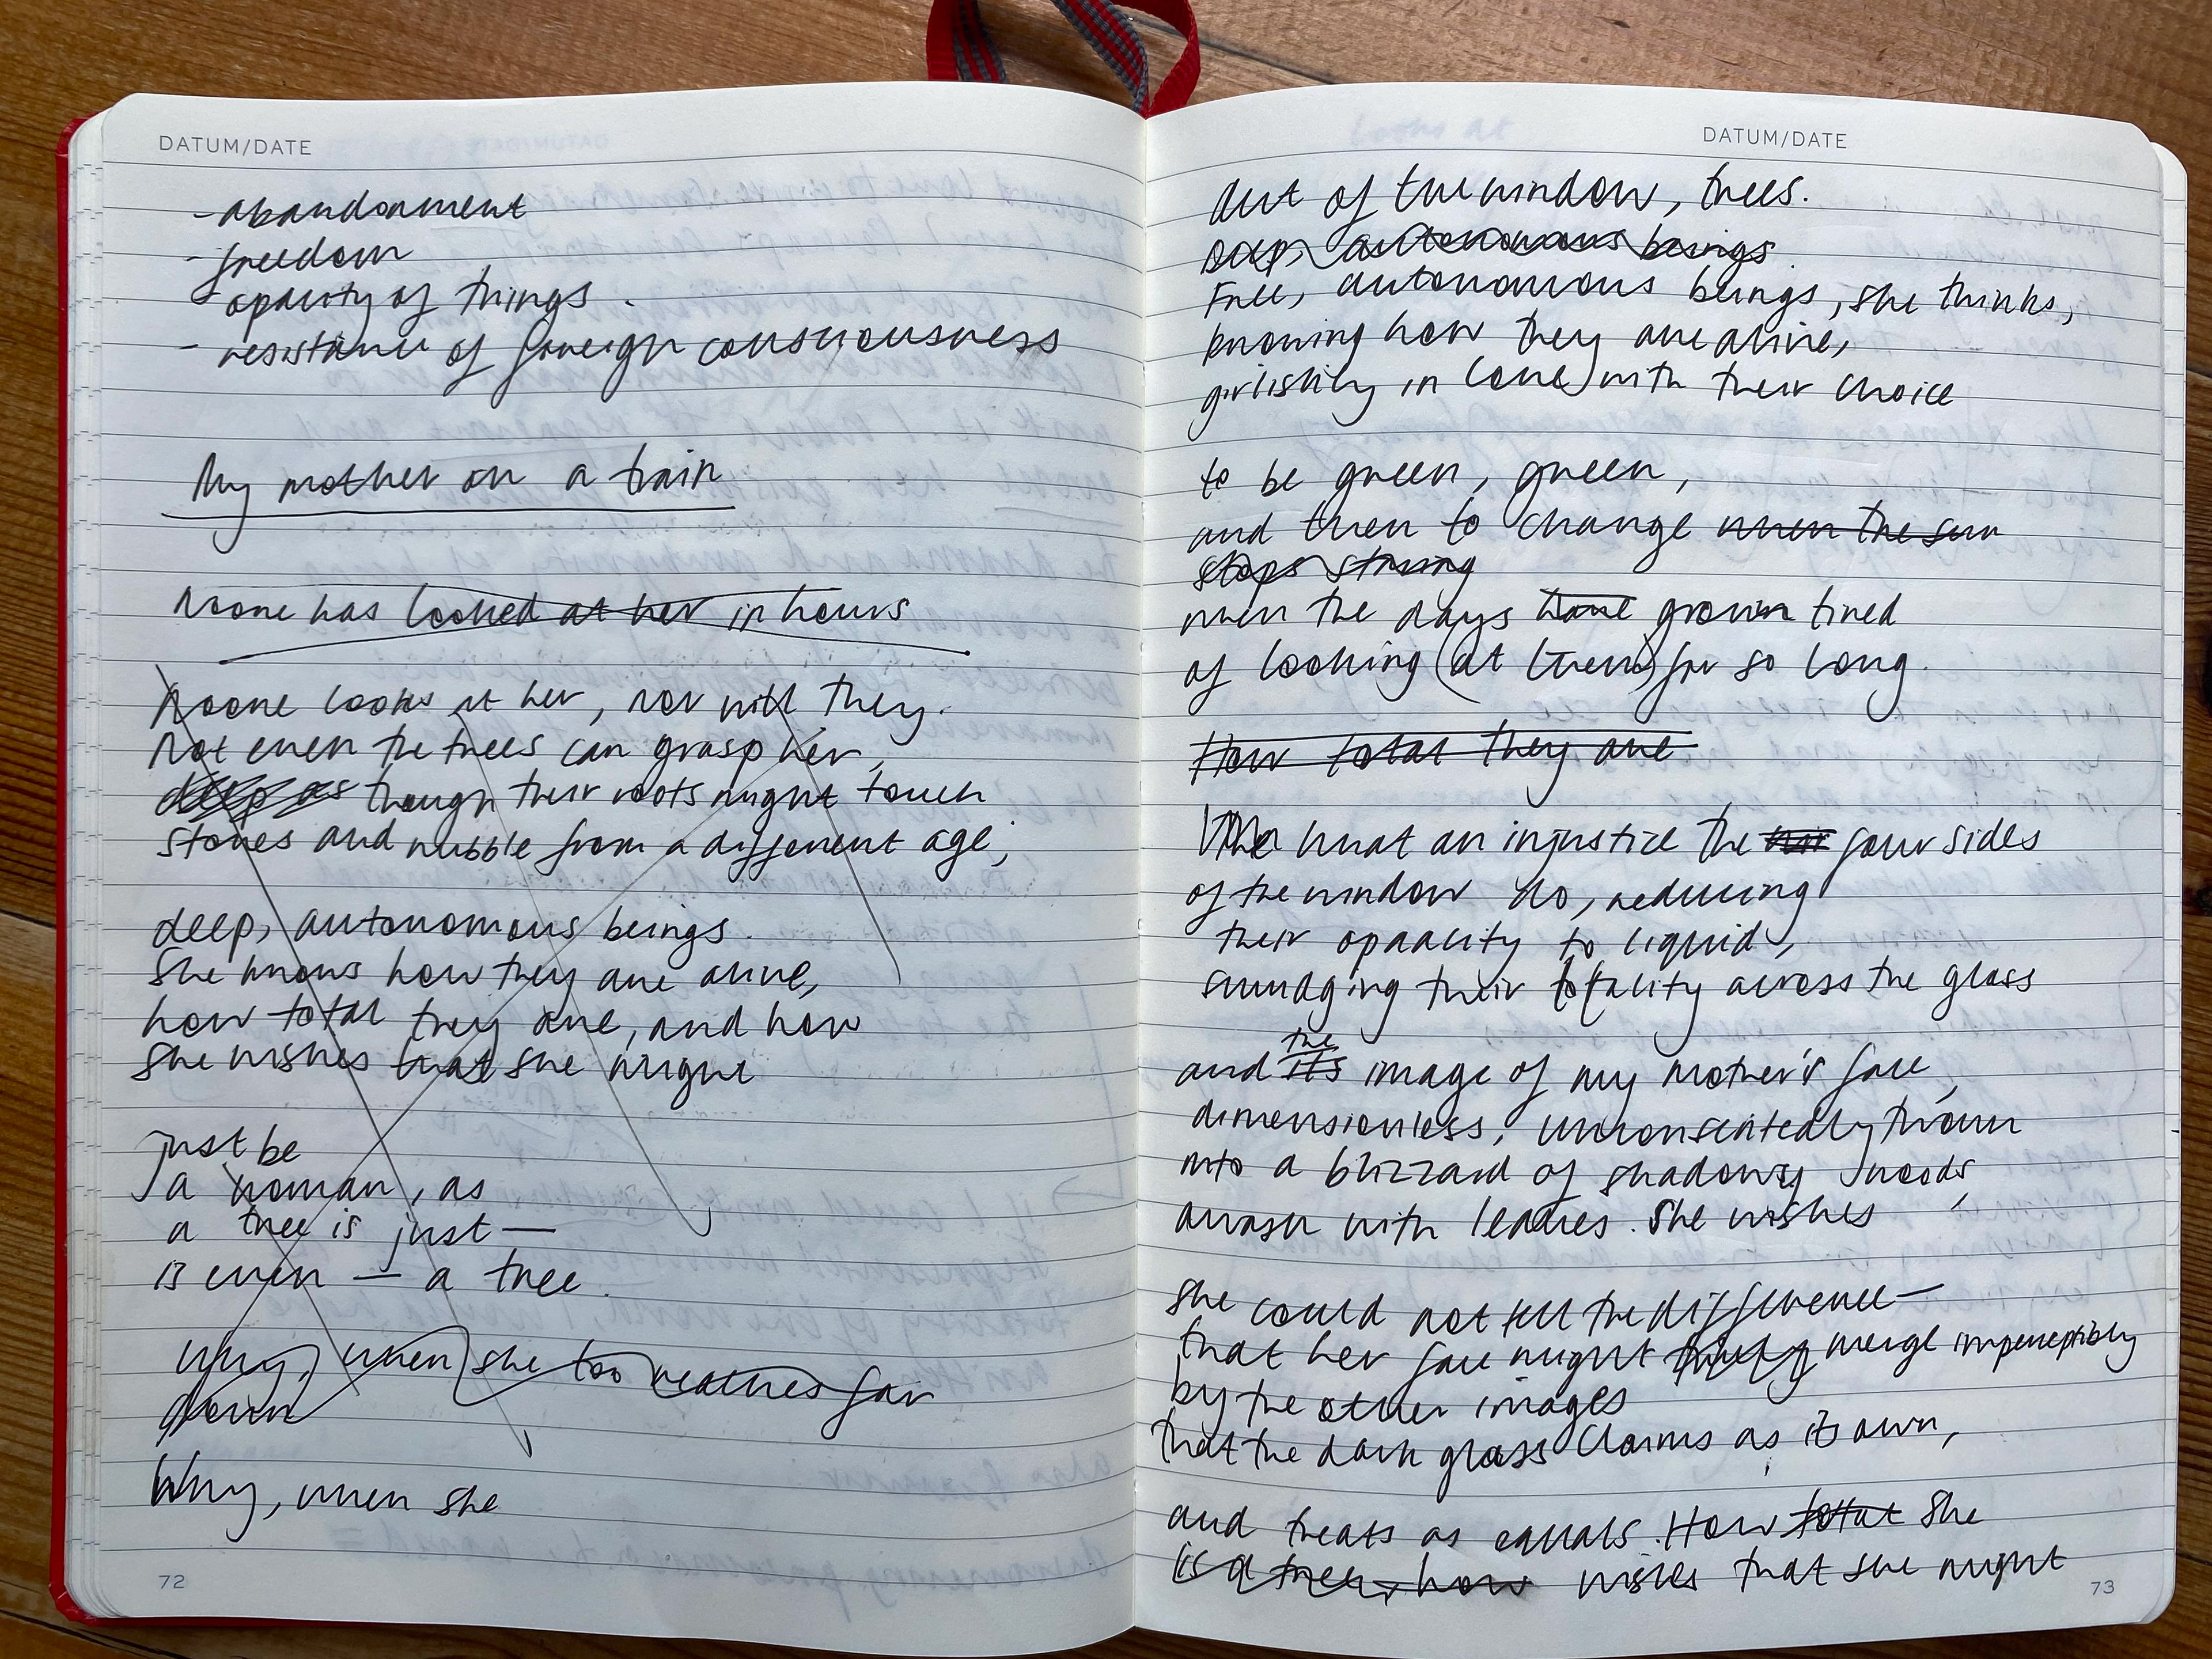 DATUM/DATE
- abandonment
- freedom
- opacity of things
- resistance of foreign consciousness
My mother on a train
Noone has looked at her in hours
Noone looks at her, nor will they.
Not even the trees can grasp her,
deep as though their roots might touch
stones and rubble from a different age,
deep, autonomous beings.
She knows how they are alive,
how total they are, and how
she wishes that she might
just be
a woman, as
a tree is just —
is even — a tree.
Why, when she too reaches far
down
Why, when she
72
DATUM/DATE
Out of the window, trees.
Deep, autonomous beings
Free, autonomous beings, she thinks,
knowing how they are alive,
girlishly in love with their choice
to be green, green,
and then to change when the sun
stops
when the days have grown tired
of looking (at them) for so long.
How total they are
What an injustice the four sides
of the window do, reducing
their opacity to liquid,
smudging their totality across the glass
and its the image of my mother's face,
dimensionless, unconsentedly thrown
into a blizzard of shadowy woods,
awash with leaves. She wishes
she could not tell the difference —
that her face might merge imperceptibly
by the other images
that the dark glass claims as its own,
and treats as equals. How total she
is a tree, how wishes that she might
73